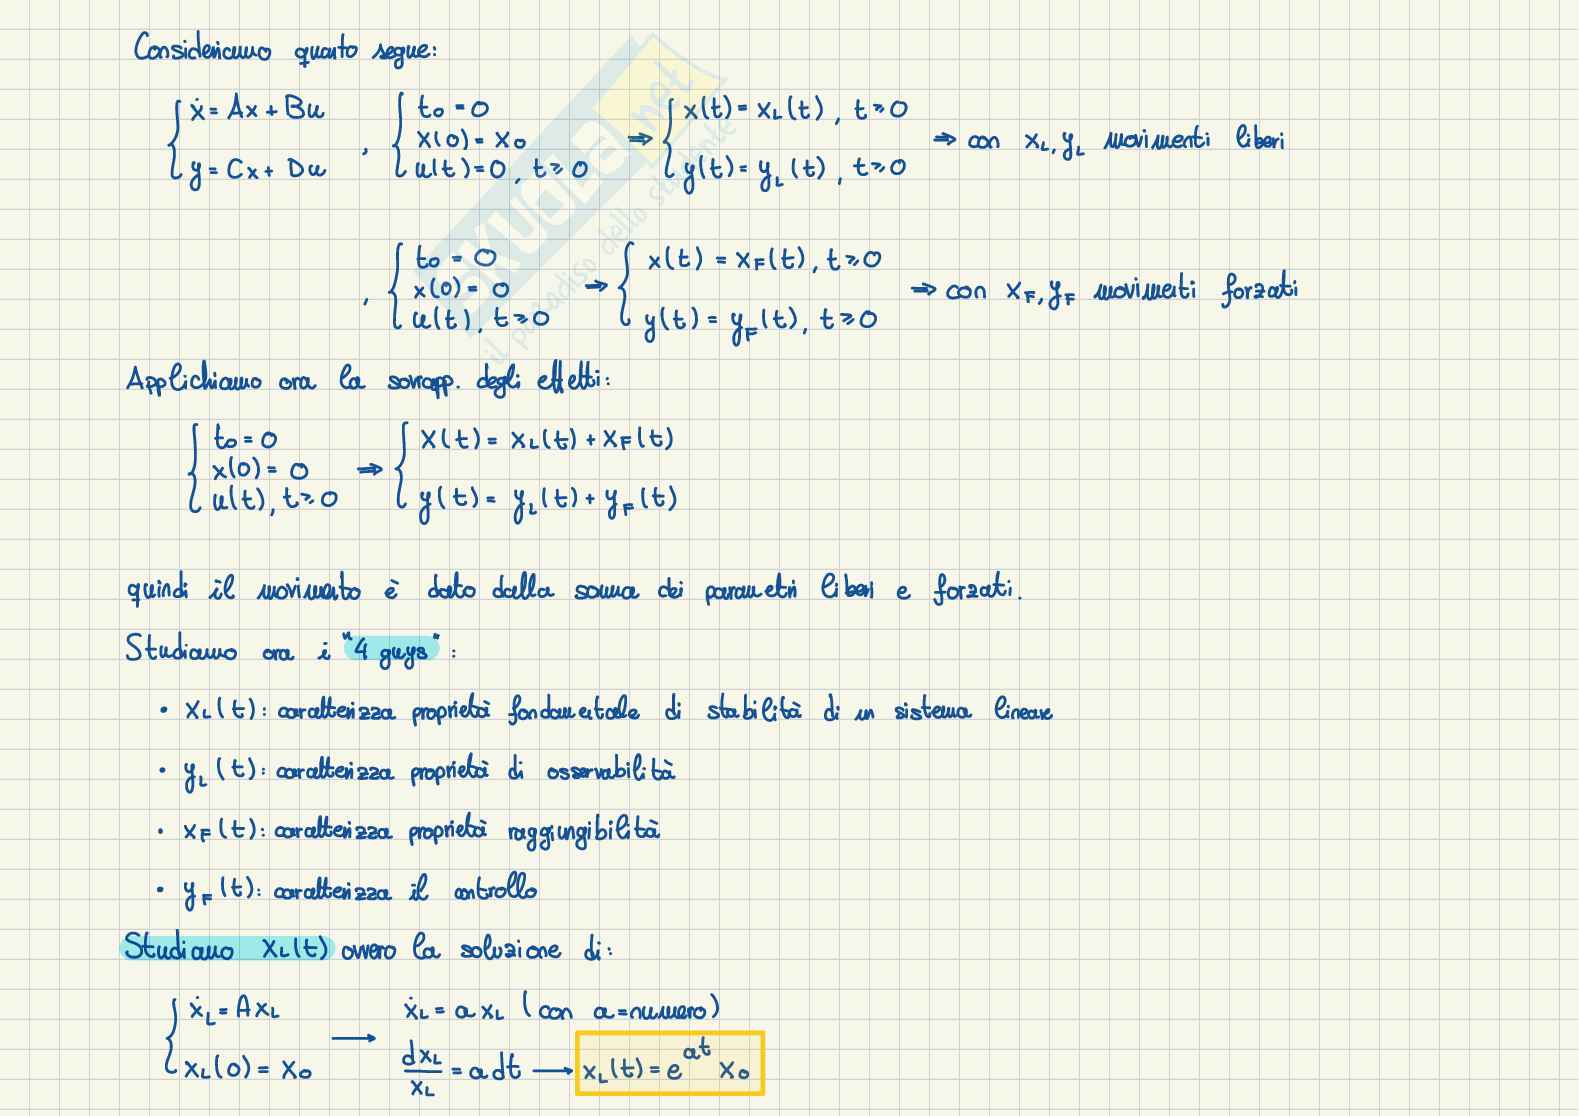 Consideriamo quanto segue:
{ ẋ = Ax + Bu , { t₀ = 0 ⇒ { x(t) = x_L(t) , t ≥ 0 ⇒ con x_L, y_L movimenti liberi
x(0) = x₀
y = Cx + Du u(t) = 0 , t ≥ 0 y(t) = y_L(t) , t ≥ 0
, { t₀ = 0 ⇒ { x(t) = x_F(t) , t ≥ 0 ⇒ con x_F, y_F movimenti forzati
x(0) = 0
u(t), t ≥ 0 y(t) = y_F(t), t ≥ 0
SKUOLA.net
il paradiso dello studente
Applichiamo ora la sovrapp. degli effetti:
{ t₀ = 0 ⇒ { x(t) = x_L(t) + x_F(t)
x(0) = 0
u(t), t ≥ 0 y(t) = y_L(t) + y_F(t)
quindi il movimento è dato dalla somma dei parametri liberi e forzati.
Studiamo ora i "4 guys" :
• x_L(t): caratterizza proprietà fondamentale di stabilità di un sistema lineare
• y_L(t): caratterizza proprietà di osservabilità
• x_F(t): caratterizza proprietà raggiungibilità
• y_F(t): caratterizza il controllo
Studiamo x_L(t) ovvero la soluzione di:
{ ẋ_L = A x_L → ẋ_L = a x_L (con a = numero)
x_L(0) = x₀ dx_L/x_L = a dt → x_L(t) = e^{at} x₀